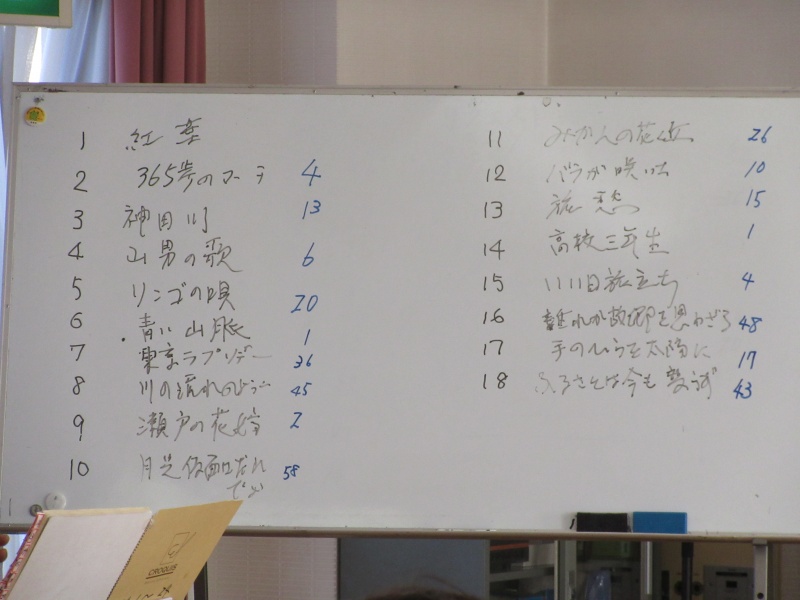 1 紅葉
2 365歩のマーチ 4
3 神田川 13
4 山男の歌 6
5 リンゴの唄 20
6 青い山脈 1
7 東京ラプソディー 36
8 川の流れのように 45
9 瀬戸の花嫁 2
10 月光仮面はだれ 58
でしょ
11 みかんの花咲く丘 26
12 バラが咲いた 10
13 旅愁 15
14 高校三年生 1
15 いい日旅立ち 4
16 誰れか故郷を思わざる 48
17 手のひらを太陽に 17
18 ふるさとは今も変らず 43
CROQUIS